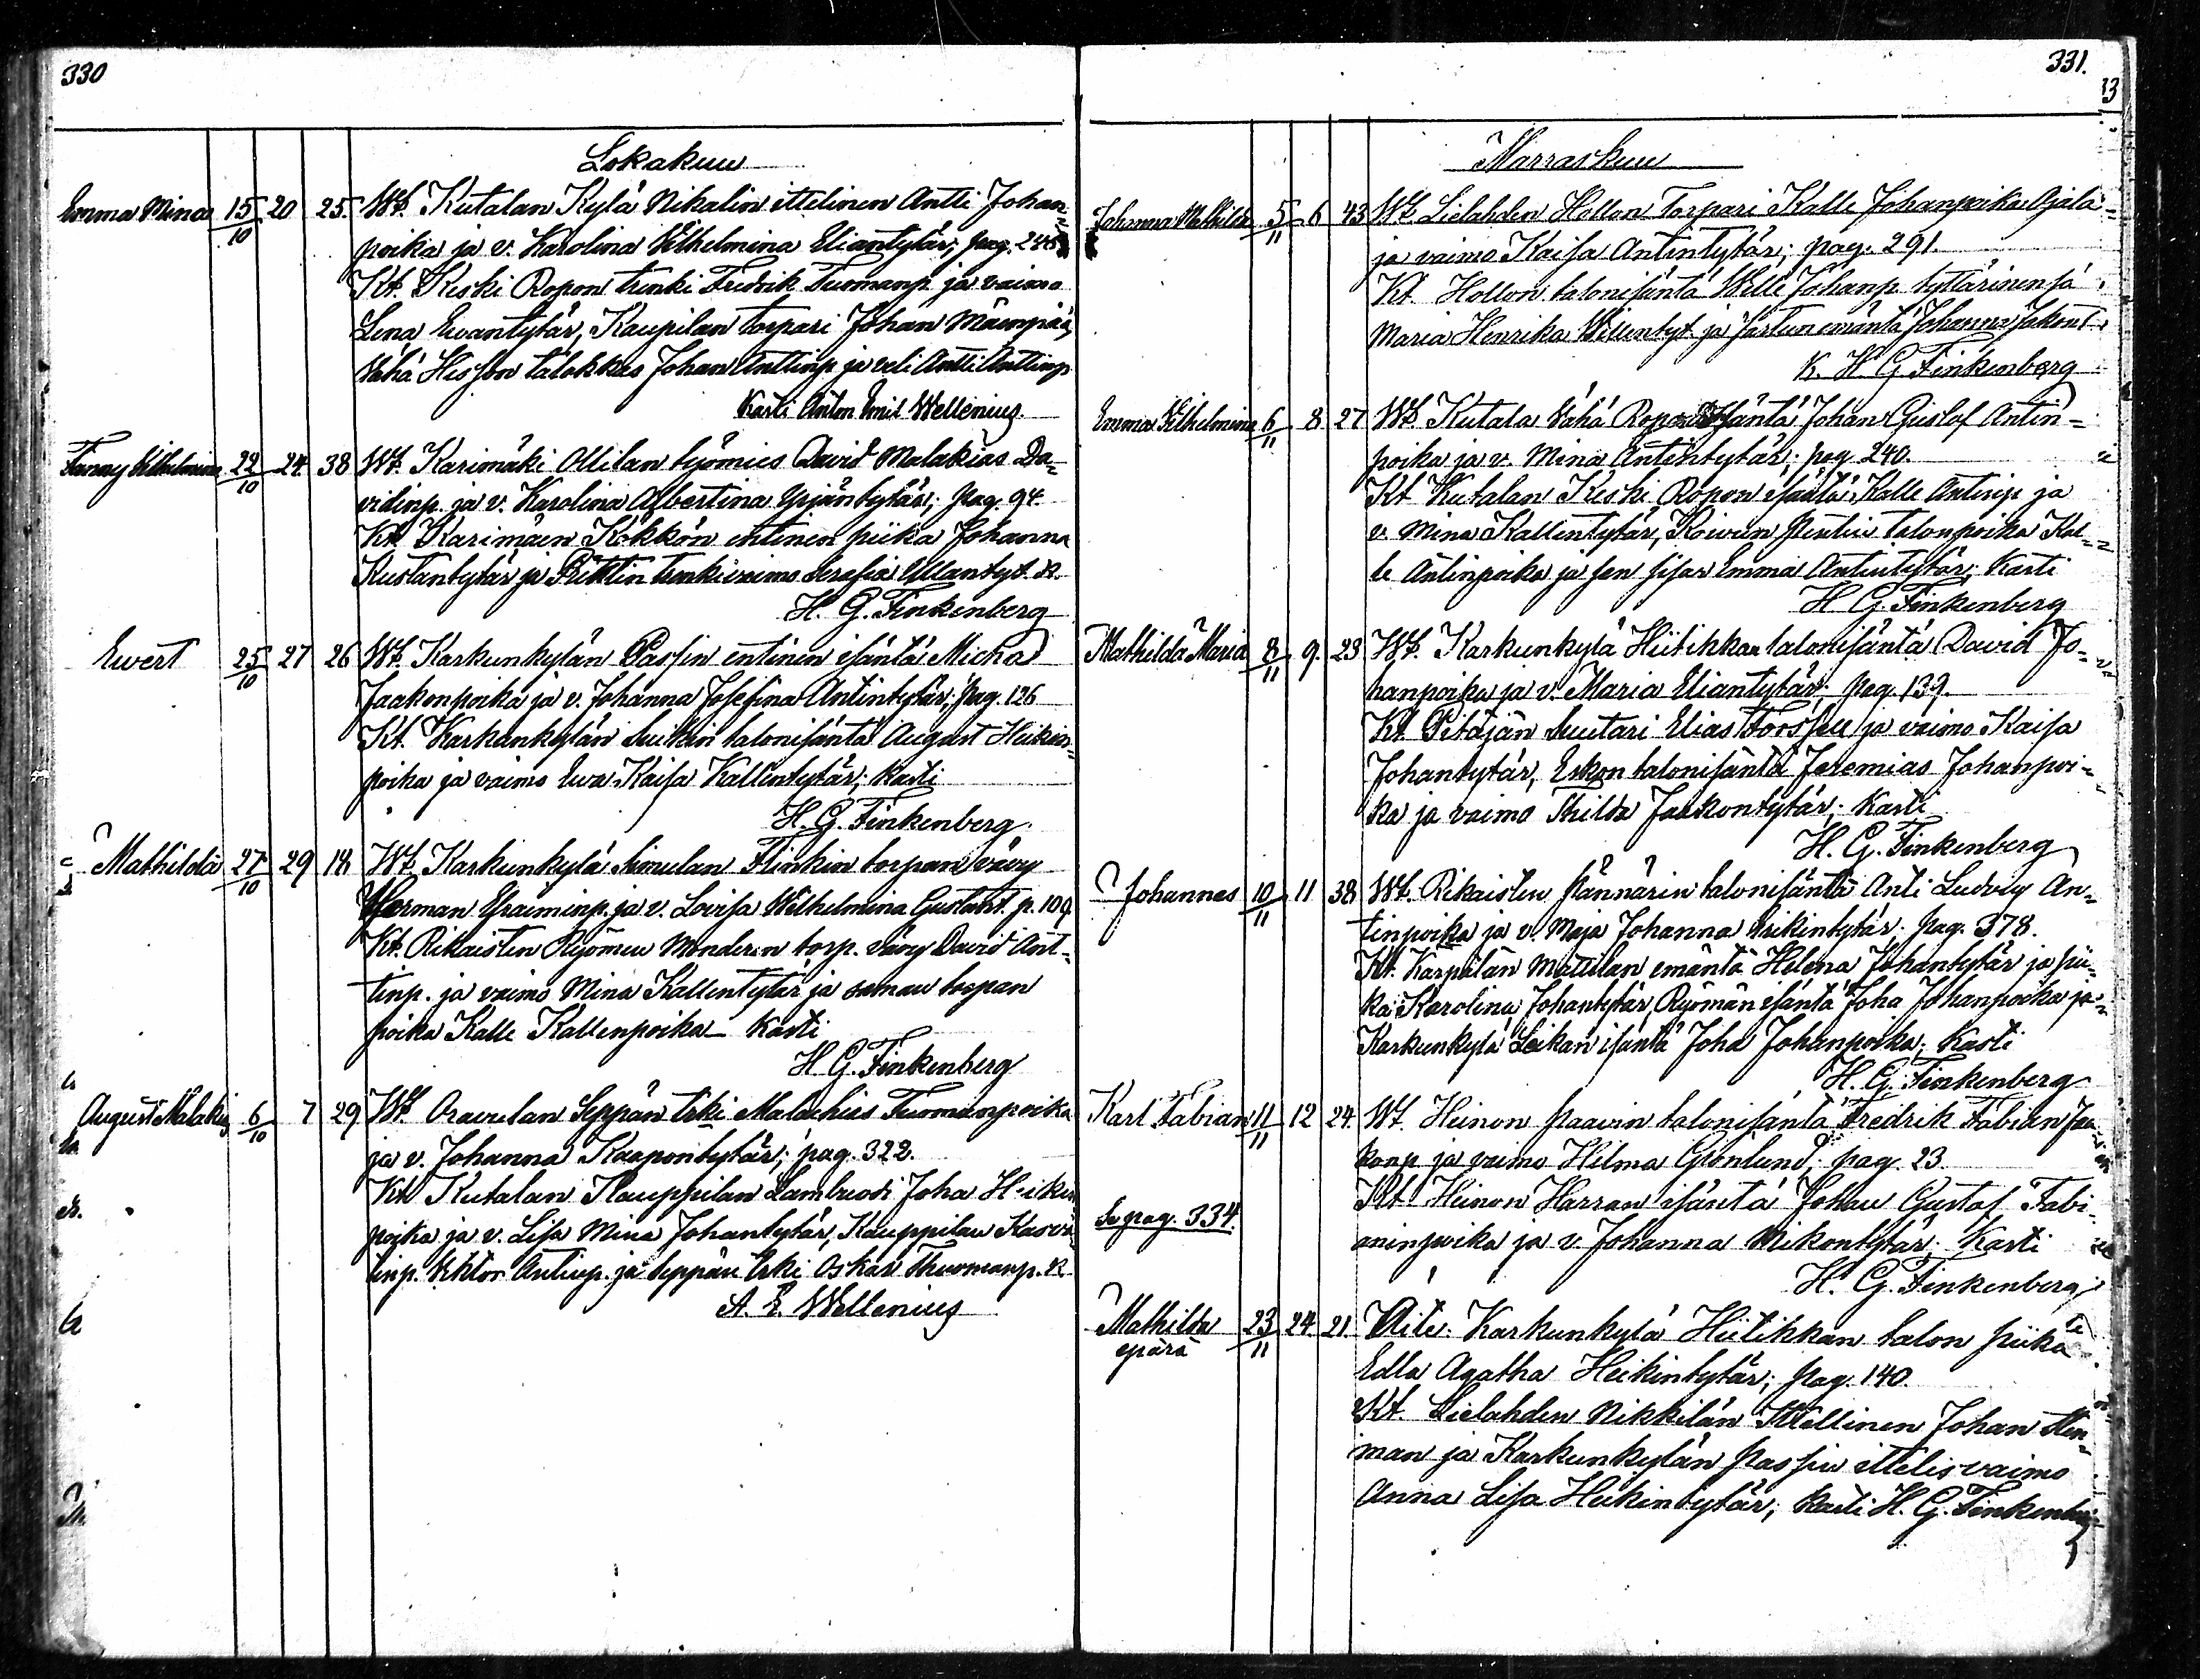 330
Lokakuu
Emma Mina 15/10 20 25. Wt. Kutalan Kylä Nikalin ittelinen Antti Johan-
poika ja v. Karolina Wilhelmina Eliantytär; pag. 245
Kt. Keski Ropon trenki Fredrik Tuomanp. ja vaimo
Lena Ewantytär, Kaupilan torpari Johan Mäenpää,
Wähä Hisson talokkas Johan Anttinp. ja veli Antti Anttinp
Kasti Anton Emil Wellenius.
Fanny Wilhelmina 22/10 24 38 Wt. Karimäki Ollilan työmies David Malakias Da-
vidinp. ja v. Karolina Albertina Yrjäntytär; pag. 94.
Kt. Karimäen Kökkön entinen piika Johanna
Kustantytär ja trenkivaimo Serafia K.
H. G. Finkenberg
Ewert 25/10 27 26 Wt. Karkunkylän Passin entinen isäntä Micha
Jaakonpoika ja v. Johanna Josefina Antintytär; pag. 126
Kt. Karkunkylän talonisäntä August Heikin-
poika ja vaimo Ewa Kaisa Kallentytär; Kasti
H. G. Finkenberg.
Mathilda 27/10 29 18 Wt. Karkunkylä Simulan Flinkin torpan vävy
Herman Efraiminp. ja v. Lovisa Wilhelmina Gustant. p. 109
Kt. Rikaisten Ryömen torp. vävy David Ant-
tinp. ja vaimo Mina Kallentytär ja saman torpan
poika Kalle Kallenpoika – Kasti
H. G. Finkenberg
August Malakias 6/10 7 29 Wt. Seppän trki Malachias Tuomanpoika
ja v. Johanna Kaapontytär; pag. 322.
Kt. Kutalan Kauppilan Joha Heikin
poika ja v. Lisa Mina Johantytär, Kauppilan
tinp. Wihtor Antinp. ja Seppän trki Oskar Thuomanp. K
A. E. Wellenius
331.
13
Marraskuu
Johanna Mathilda 5/11 6 43 Wt. Lielahden Hollon Torpari Kalle Johanpoika Ojala
ja vaimo Kaisa Antintytär; pag. 291.
Kt. Hollon talonisäntä Wille Johanp.
Maria Henrika ja emäntä Johanna
K. H. G. Finkenberg
Emma Wilhelmina 6/11 8 27 Wt. Kutala Wähä Ropon isäntä Johan Gustaf Antin-
poika ja v. Mina Antintytär; pag. 240.
Kt. Kutalan Keski Ropon isäntä Kalle Antinp. ja
v. Mina Kallentytär, Koivun talonpoika Kal-
le Antinpoika ja sen sisar Emma Antintytär; Kasti
H. G. Finkenberg
Mathilda Maria 8/11 9. 23 Wt. Karkunkylä Hiitikkan talonisäntä David Jo-
hanpoika ja v. Maria Eliantytär; pag. 139.
Kt. Pitäjän Suutari Elias Forssell ja vaimo Kaisa
Johantytär, Eskon talonisäntä Jeremias Johanpoi-
ka ja vaimo Thilda Jaakontytär; Kasti
H. G. Finkenberg
Johannes 10/11 11 38 Wt. Rikaisten Pännärin talonisäntä Anti Ludvig An-
tinpoika ja v. Maja Johanna Erikintytär; pag. 378.
Kt. Karpilan Mattilan emäntä Helena Johantytär ja pii-
ka Karolina Johantytär, Ryömän isäntä Joha Johanpoika ja
Karkunkylä isäntä Joha Johanpoika; Kasti
H. G. Finkenberg
Karl Fabian 11/11 12 24. Wt. Heinon Paavin talonisäntä Fredrik Fabian Jaa-
konp. ja vaimo Hilma Grönlund; pag. 23.
Kt. Heinon Harran isäntä Johan Gustaf Fabi-
aninpoika ja v. Johanna Mikontytär; Kasti
H. G. Finkenberg
Se pag. 334.
Mathilda
epärä 23/11 24 21. Äiti. Karkunkylä Hiitikkan talon piika
Edla Agatha Heikintytär; pag. 140.
Kt. Lielahden Nikkilän Ittellinen Johan Sten-
man ja Karkunkylän Passin ittelisvaimo
Anna Lisa Heikintytär; Kasti H. G. Finkenberg